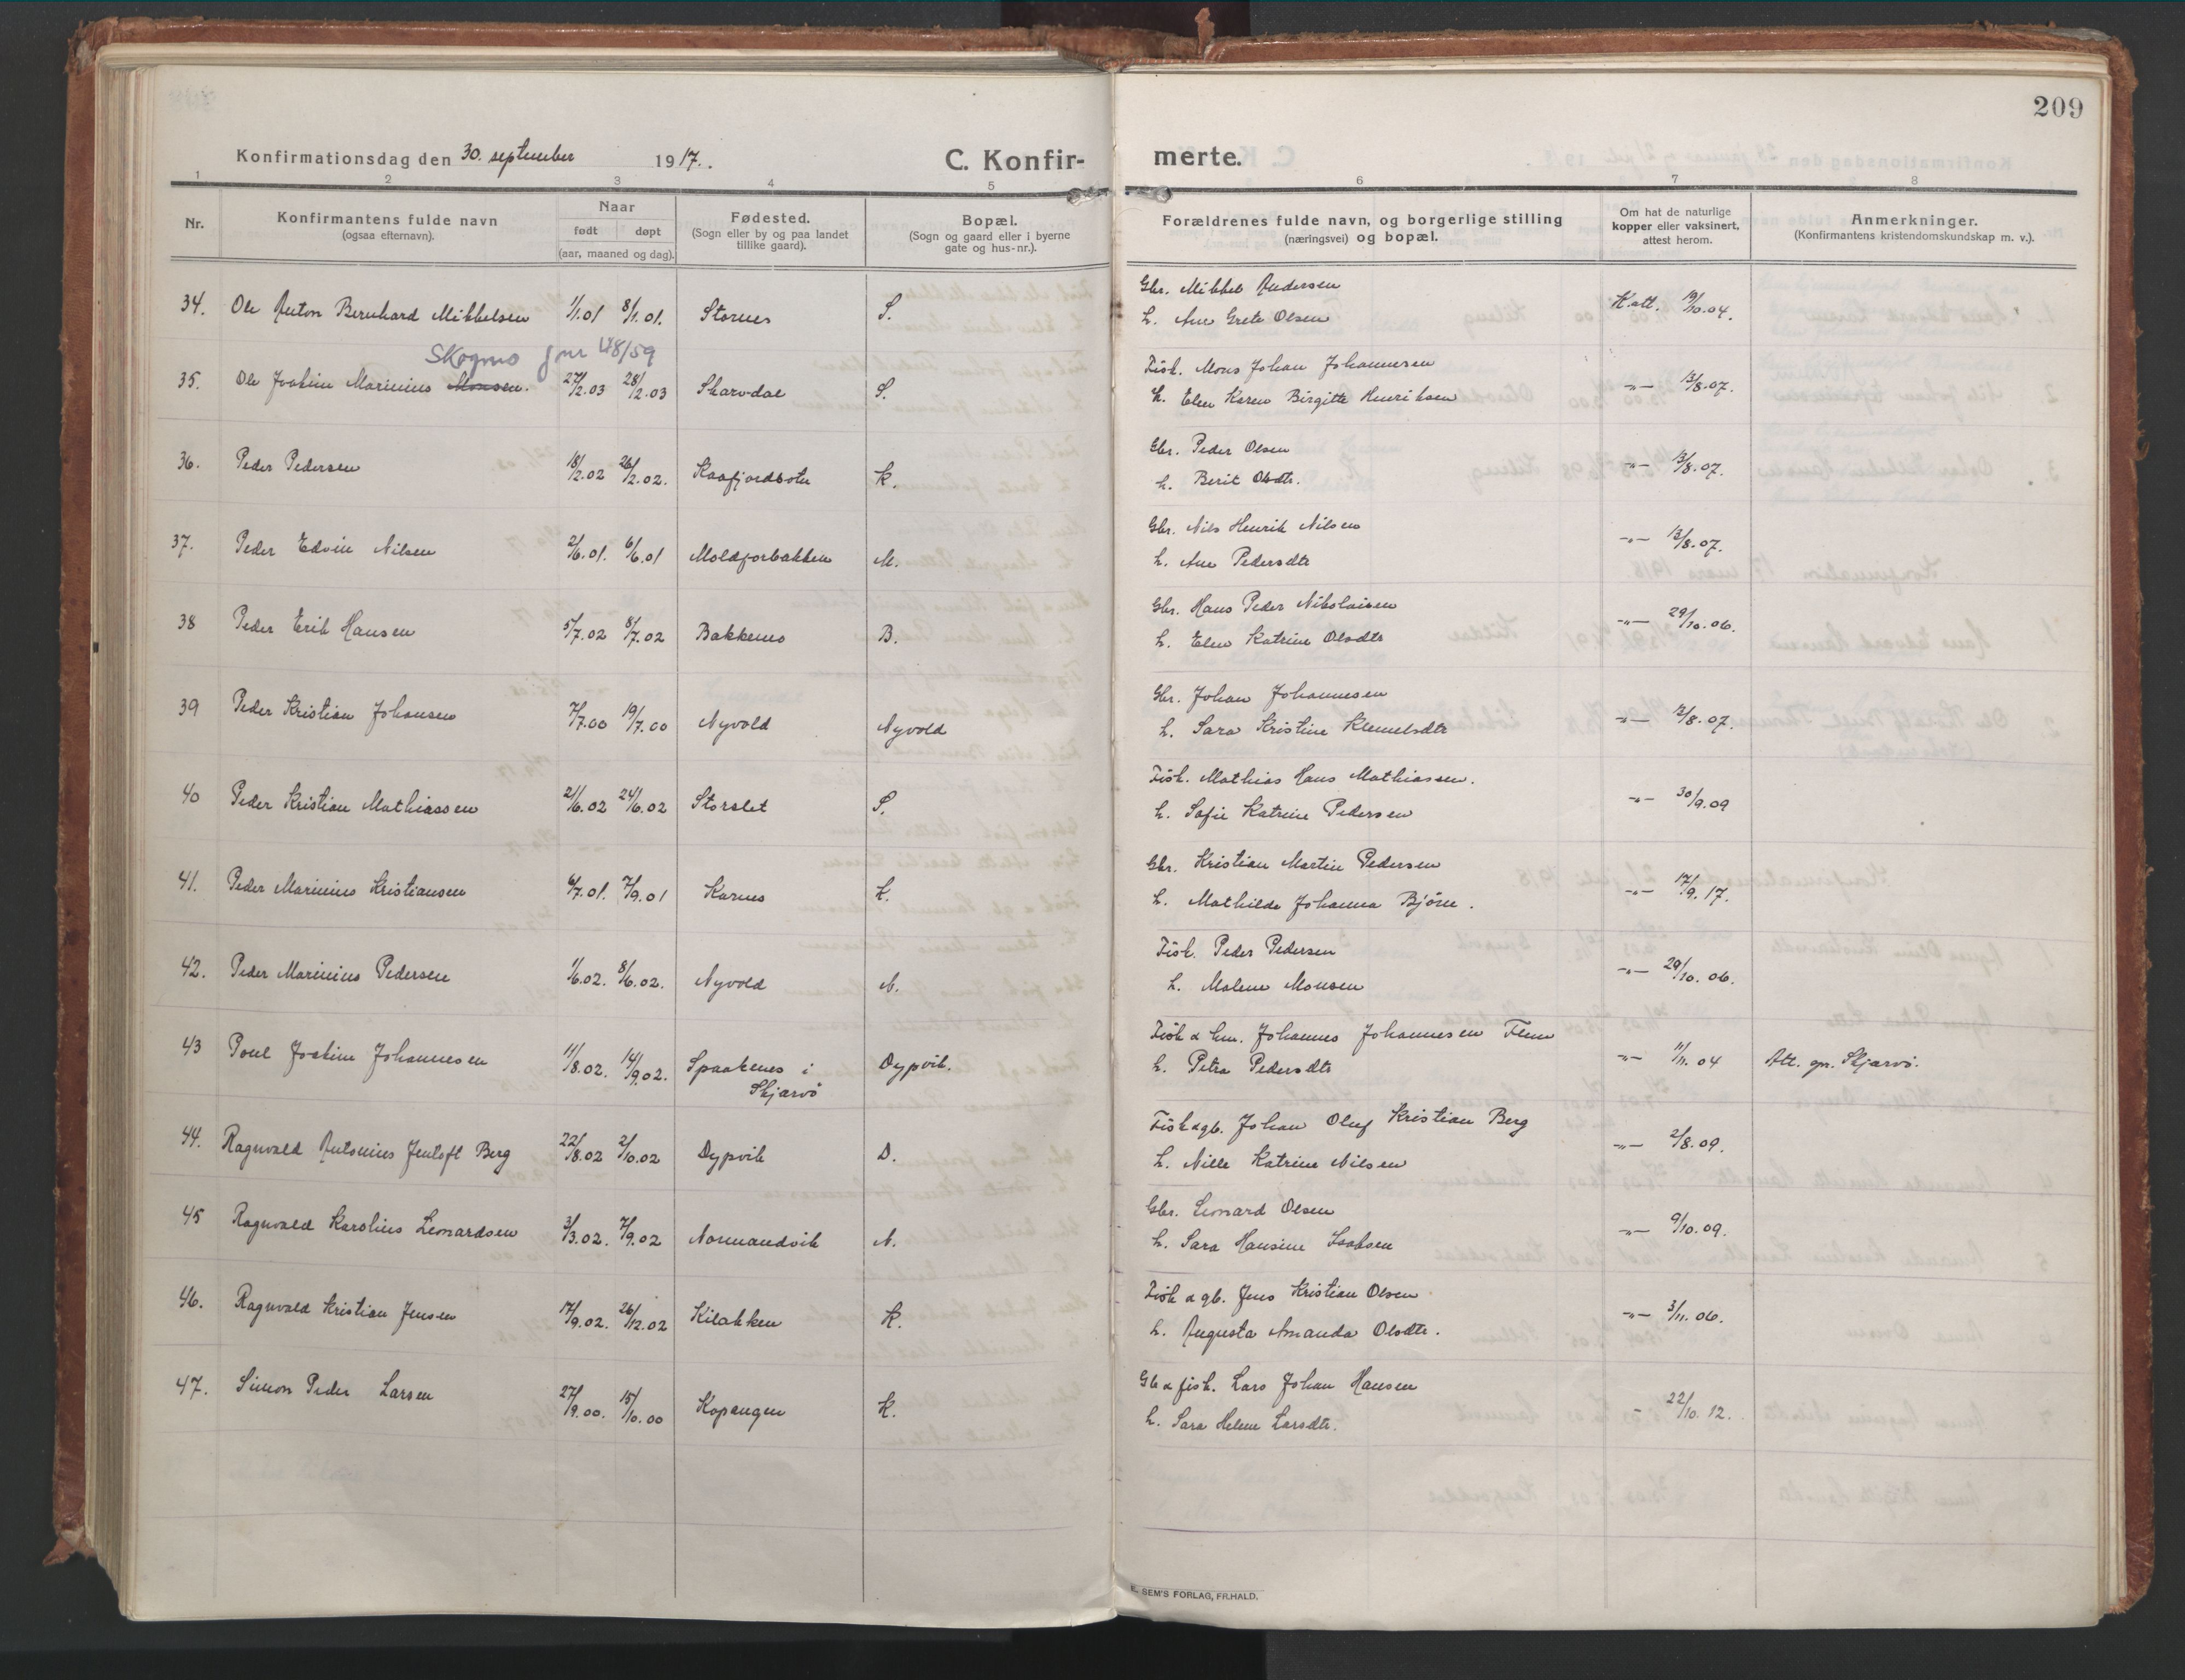 209
Konfirmationsdag den 30. september 1917. C. Konfirmerte.
1 2 3 4 5 6 7 8
Nr. Konfirmantens fulde navn (ogsaa efternavn). Naar født døpt (aar, maaned og dag). Fødested. (Sogn eller by og paa landet tillike gaard). Bopæl. (Sogn og gaard eller i byerne gate og hus-nr.). Forældrenes fulde navn, og borgerlige stilling (næringsvei) og bopæl. Om hat de naturlige kopper eller vaksinert, attest herom. Anmerkninger. (Konfirmantens kristendomskundskap m. v.).
34. Ole Anton Bernhard Mikkelsen 1/1.01 8/1.01. Stornes S. Gbr. Mikkel Andersen H. att. 19/10.04.
h. Ane Grete Olsen
Skogmo jnr 48/59
35. Ole Joakim Marinius Monsen. 27/2.03 28/2.03 Skarvdal S. Fisk. Mons Johan Johannesen -"- 13/8.07.
h. Elen Karen Birgitte Henriksen
36. Peder Pedersen 18/2.02 26/2.02. Kaafjordbotn K. Gbr. Peder Olsen -"- 13/8.07.
h. Berit Olsdtr.
37. Peder Edvin Nilsen 2/6.01. 6/6.01 Moldforbakken M. Gbr. Nils Henrik Nilsen -"- 13/8.07.
h. Ane Pedersdtr
38 Peder Erik Hansen 5/7.02 8/7.02 Bakkenes B. Gbr. Hans Peder Nikolaisen -"- 29/10.06.
h. Elen Katrine Olsdtr
39 Peder Kristian Johansen 7/7.00 19/7.00 Nyvold Nyvold Gbr. Johan Johannesen -"- 12/8.07.
h. Sara Kristine Klemetsdtr
40 Peder Kristian Mathiassen 21/6.02 24/6.02 Storslet S. Fisk. Mathias Hans Mathiassen. -"- 30/9.09
h. Sofie Katrine Pedersen
41. Peder Marinius Kristiansen 6/7.01. 7/9.01 Karnes K. Gbr. Kristian Martin Pedersen -"- 17/9.17.
h. Mathilde Johanna Bjørn.
42. Peder Marinius Pedersen 1/6.02. 8/6.02. Nyvold N. Fisk. Peder Pedersen -"- 29/10.06.
h. Malene Monsen
43 Poul Joakim Johannesen 11/8.02. 14/9.02. Spaakenes i Skjærvö Dypvik. Fisk & hm. Johannes Johannesen Flem -"- 11/11.04 Att. gn. Skjærvö.
h. Petra Pedersdtr
44. Ragnvald Antonius Jentoft Berg 22/8.02 2/10.02 Dypvik D. Fisk & gb. Johan Oluf Kristian Berg -"- 2/8.09.
h. Nille Katrine Nilsen
45 Ragnvald Karolius Leonardsen 3/3.02. 7/9.02 Normandvik N. Gbr. Leonard Olsen -"- 9/10.09.
h. Sara Hansine Isaksen
46. Ragnvald Kristian Jensen 17/9.02. 26/12.02 Kilakken K. Fisk & gb. Jens Kristian Olsen -"- 3/11.06.
h. Augusta Amanda Olsdtr.
47. Simon Peder Larsen 27/9.00. 15/10.00 Kopangen K. Gb & fisk. Lars Johan Hansen - 22/10.12.
h. Sara Helene Larsdtr.
E. SEM'S FORLAG, FR.HALD.